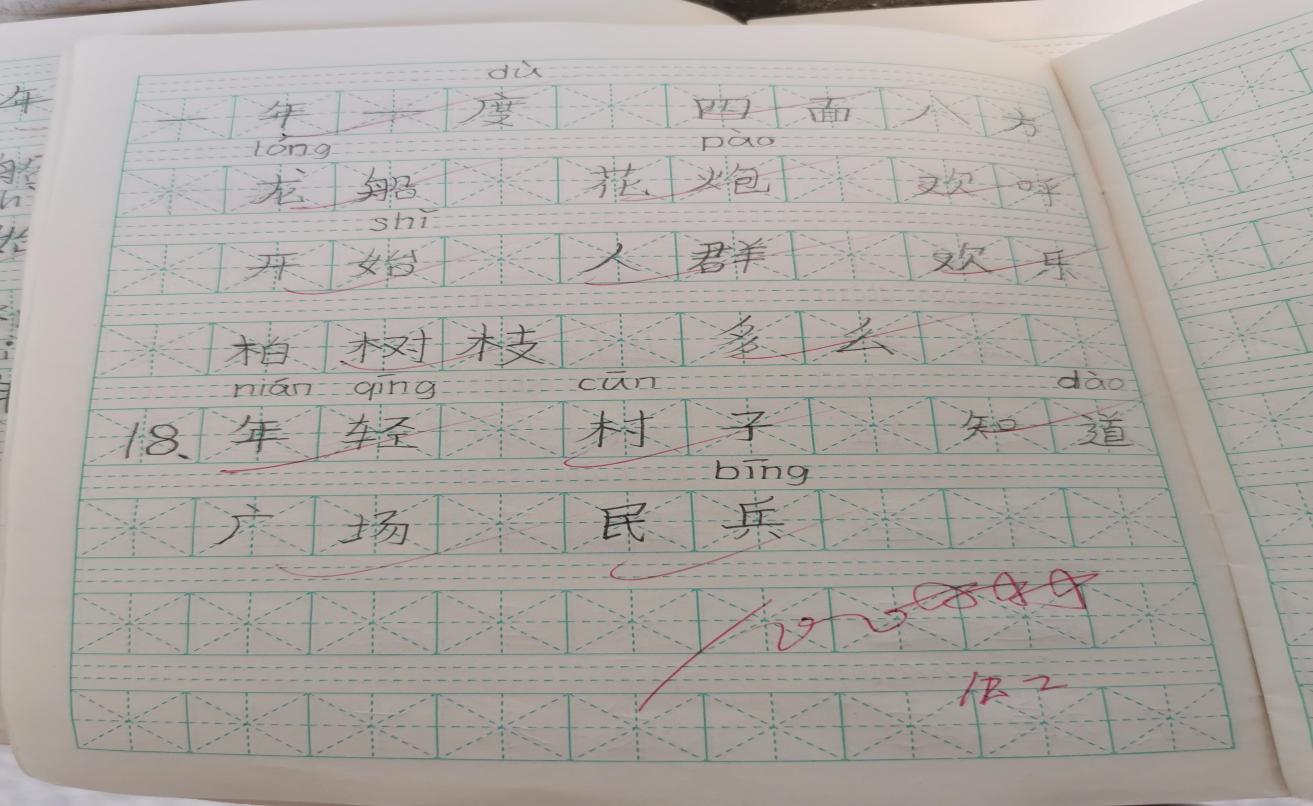 dù
一年一度 四面八方
lóng pào
龙船 花炮 欢呼
shǐ
开始 人群 欢乐
柏树枝 多么
nián qīng cūn dào
18、年轻 村子 知道
bīng
广场 民兵
年